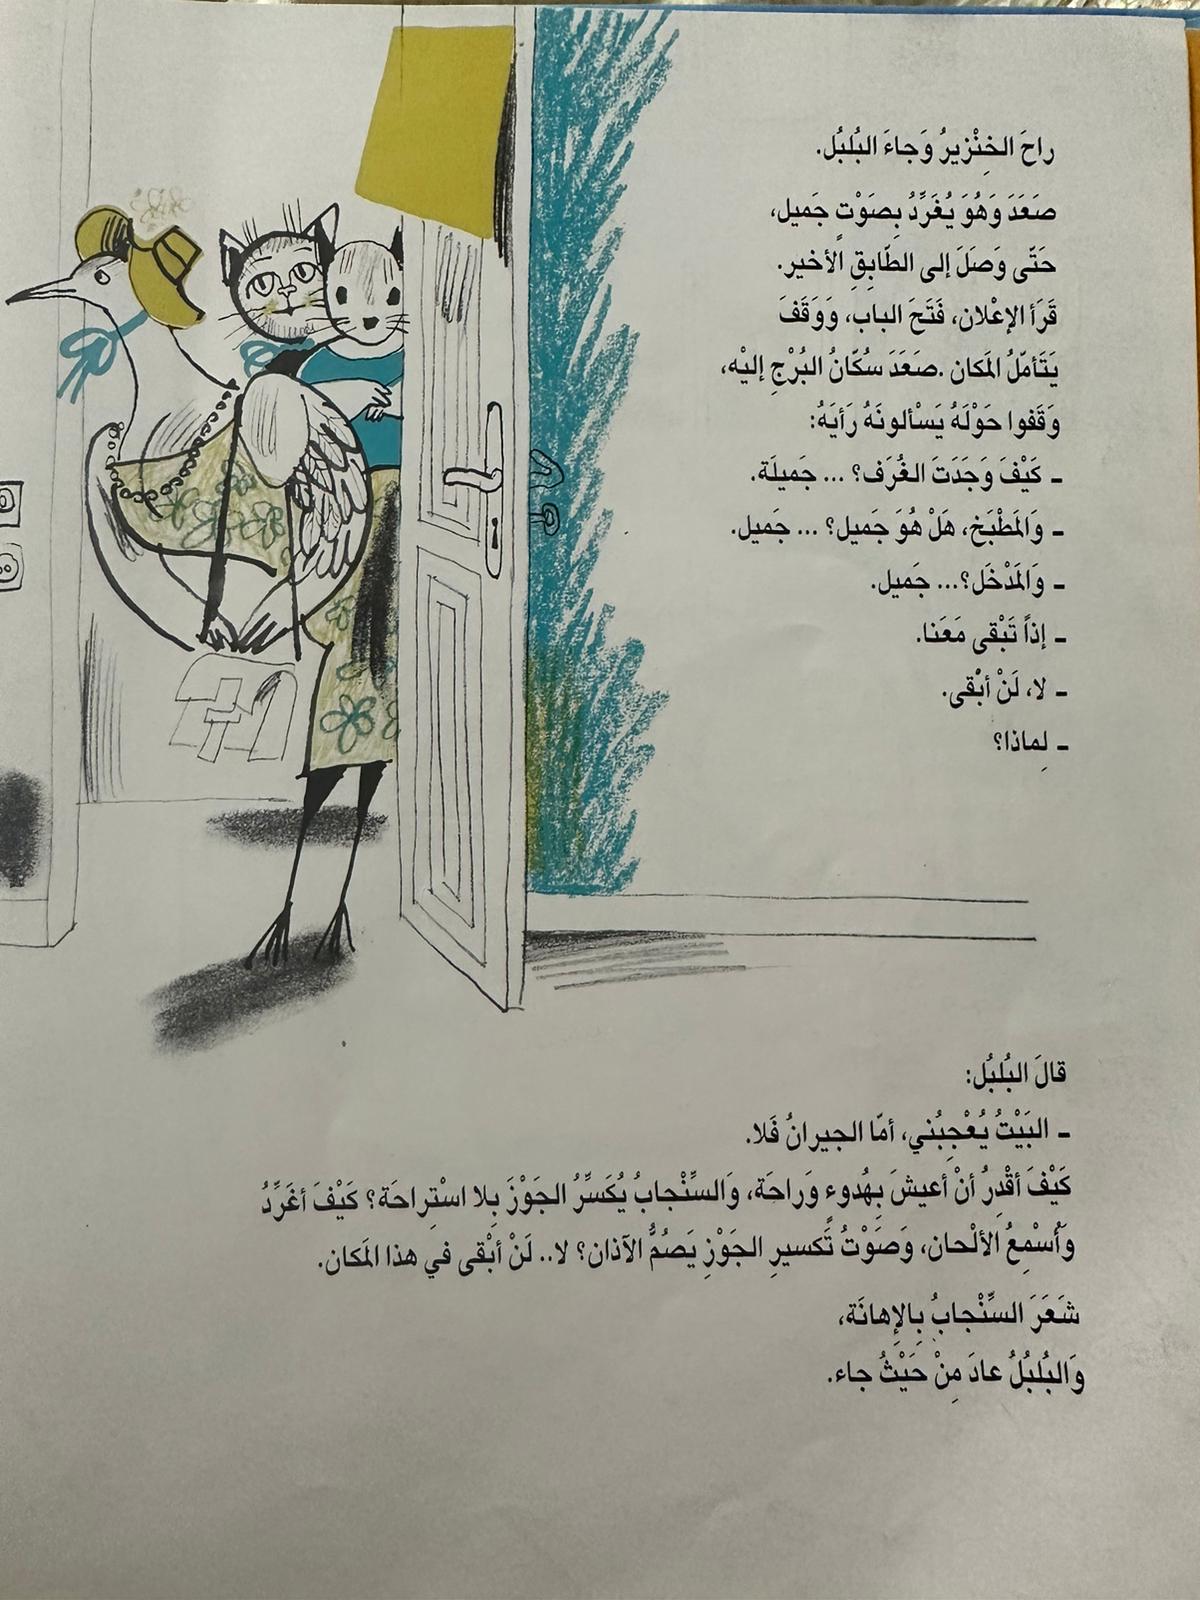 راحَ الخِنْزيرُ وَجاءَ البُلبُل.
صَعَدَ وَهُوَ يُغَرِّدُ بِصَوْتٍ جَميل،
حَتّى وَصَلَ إلى الطّابِقِ الأخير.
قَرَأ الإعْلان، فَتَحَ الباب، وَوَقَفَ
يَتَأمّلُ المَكان .صَعَدَ سُكّانُ البُرْجِ إليْه،
وَقَفوا حَوْلَهُ يَسْألونَهُ رَأيَهُ:
- كَيْفَ وَجَدَتَ الغُرَف؟ ... جَميلَة.
- وَالمَطْبَخ، هَلْ هُوَ جَميل؟ ... جَميل.
- وَالمَدْخَل؟... جَميل.
- إذاً تَبْقى مَعَنا.
- لا، لَنْ أبْقى.
- لِماذا؟
قالَ البُلبُل:
- البَيْتُ يُعْجِبُني، أمّا الجيرانُ فَلا.
كَيْفَ أقْدِرُ أنْ أعيشَ بِهُدوءٍ وَراحَة، وَالسِّنْجابُ يُكَسِّرُ الجَوْزَ بِلا اسْتِراحَة؟ كَيْفَ أغَرِّدُ
وَأُسْمِعُ الألْحان، وَصَوْتُ تَكسيرِ الجَوْزِ يَصُمُّ الآذان؟ لا.. لَنْ أبْقى في هذا المَكان.
شَعَرَ السِّنْجابُ بِالإهانَة،
وَالبُلبُلُ عادَ مِنْ حَيْثُ جاء.